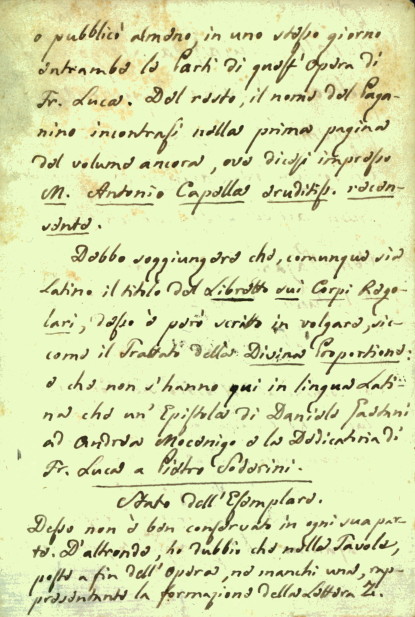 o pubblicò almeno, in uno stesso giorno
entrambe le Parti di quest' Opera di
Fr. Luca. Del resto, il nome del Paga-
nino incontrasi nella prima pagina
del volume ancora, ove dicesi impresso
M. Antonio Capella eruditiss. recen-
sente.
Debbo soggiungere che, comunque sia
Latino il titolo del Libretto sui Corpi Rego-
lari, desso è però scritto in volgare, sic-
come il Trattato della Divina Proportione:
e che non s'hanno qui in lingua Lati-
na che un' Epistola di Daniele Gaetani
ad Andrea Mocenigo e la Dedicatoria di
Fr. Luca a Pietro Soderini.
Stato dell' Esemplare.
Desso non è ben conservato in ogni sua par-
te. D'altronde, ho dubbio che nelle Tavole,
poste a fin dell' Opera, ne manchi una, rap-
presentante la formazione della Lettera